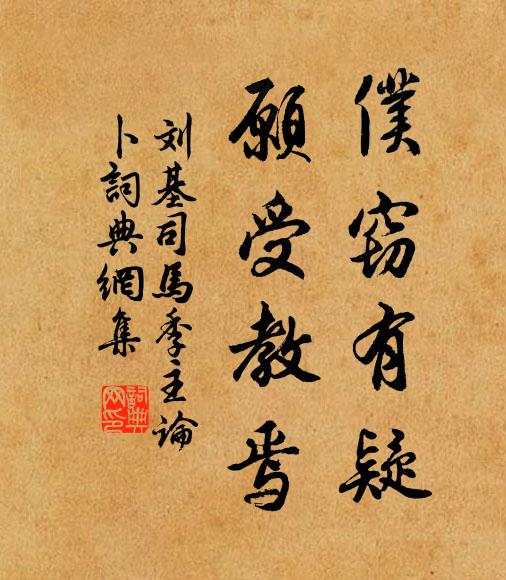 僕竊有疑
願受教焉
刘基司馬季主論
卜詞典網集
詞典
网印